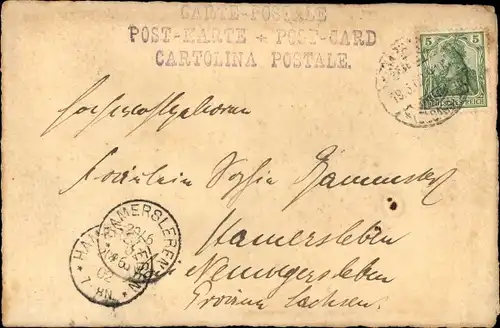 CARTE-POSTALE
POST-KARTE + POST-CARD
CARTOLINA POSTALE.
5 5
DEUTSCHES REICH
Hochwohlgeboren
Fräulein Sophie
Hamersleben
Neuwegersleben
Provinz Sachsen.
HAMERSLEBEN